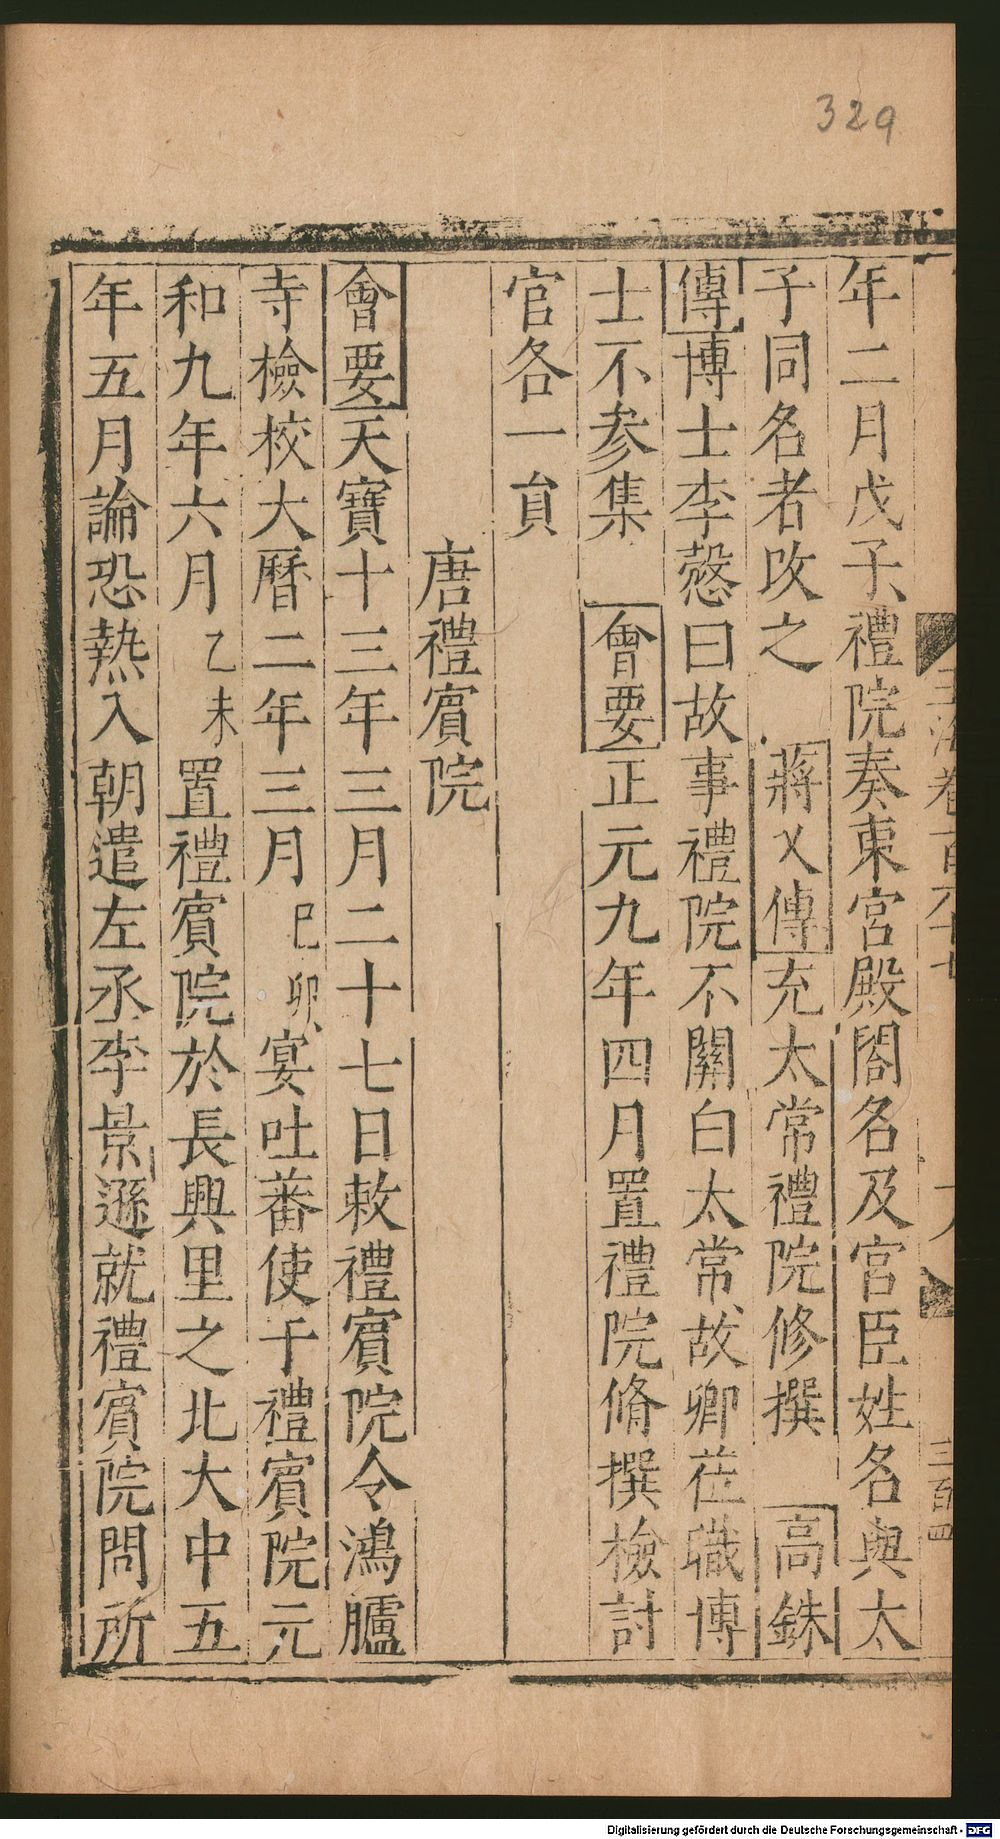 329
年二月戊子禮院奏東宮殿閤名及宮臣姓名與太
子同名者改之 蔣乂傳充太常禮院修撰 高銖
傳博士李愨曰故事禮院不關白太常故卿莅職博
士不參集 會要正元九年四月置禮院脩撰檢討
官各一員
唐禮賓院
會要天寶十三年三月二十七日敕禮賓院令鴻臚
寺檢校大曆二年三月己卯宴吐蕃使于禮賓院元
和九年六月乙未置禮賓院於長興里之北大中五
年五月論恐熱入朝遣左丞李景遜就禮賓院問所
Digitalisierung gefördert durch die Deutsche Forschungsgemeinschaft - DFG